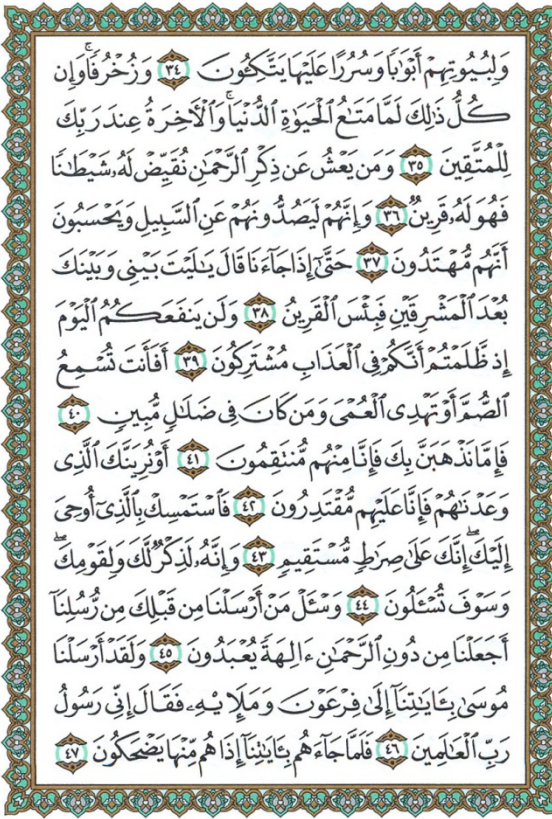 وَلِبُيُوتِهِمْ أَبْوَٰبًا وَسُرُرًا عَلَيْهَا يَتَّكِـُٔونَ ٣٤ وَزُخْرُفًا ۚ وَإِن
كُلُّ ذَٰلِكَ لَمَّا مَتَـٰعُ الْحَيَوٰةِ الدُّنْيَا ۚ وَالْـَٔاخِرَةُ عِندَ رَبِّكَ
لِلْمُتَّقِينَ ٣٥ وَمَن يَعْشُ عَن ذِكْرِ الرَّحْمَـٰنِ نُقَيِّضْ لَهُۥ شَيْطَـٰنًا
فَهُوَ لَهُۥ قَرِينٌ ٣٦ وَإِنَّهُمْ لَيَصُدُّونَهُمْ عَنِ السَّبِيلِ وَيَحْسَبُونَ
أَنَّهُم مُّهْتَدُونَ ٣٧ حَتَّىٰٓ إِذَا جَآءَنَا قَالَ يَـٰلَيْتَ بَيْنِى وَبَيْنَكَ
بُعْدَ الْمَشْرِقَيْنِ فَبِئْسَ الْقَرِينُ ٣٨ وَلَن يَنفَعَكُمُ الْيَوْمَ
إِذ ظَّلَمْتُمْ أَنَّكُمْ فِى الْعَذَابِ مُشْتَرِكُونَ ٣٩ أَفَأَنتَ تُسْمِعُ
الصُّمَّ أَوْ تَهْدِى الْعُمْىَ وَمَن كَانَ فِى ضَلَـٰلٍ مُّبِينٍ ٤٠
فَإِمَّا نَذْهَبَنَّ بِكَ فَإِنَّا مِنْهُم مُّنتَقِمُونَ ٤١ أَوْ نُرِيَنَّكَ الَّذِى
وَعَدْنَـٰهُمْ فَإِنَّا عَلَيْهِم مُّقْتَدِرُونَ ٤٢ فَاسْتَمْسِكْ بِالَّذِىٓ أُوحِىَ
إِلَيْكَ ۖ إِنَّكَ عَلَىٰ صِرَٰطٍ مُّسْتَقِيمٍ ٤٣ وَإِنَّهُۥ لَذِكْرٌ لَّكَ وَلِقَوْمِكَ ۖ
وَسَوْفَ تُسْـَٔلُونَ ٤٤ وَسْـَٔلْ مَنْ أَرْسَلْنَا مِن قَبْلِكَ مِن رُّسُلِنَآ
أَجَعَلْنَا مِن دُونِ الرَّحْمَـٰنِ ءَالِهَةً يُعْبَدُونَ ٤٥ وَلَقَدْ أَرْسَلْنَا
مُوسَىٰ بِـَٔايَـٰتِنَآ إِلَىٰ فِرْعَوْنَ وَمَلَإِي۟هِۦ فَقَالَ إِنِّى رَسُولُ
رَبِّ الْعَـٰلَمِينَ ٤٦ فَلَمَّا جَآءَهُم بِـَٔايَـٰتِنَآ إِذَا هُم مِّنْهَا يَضْحَكُونَ ٤٧